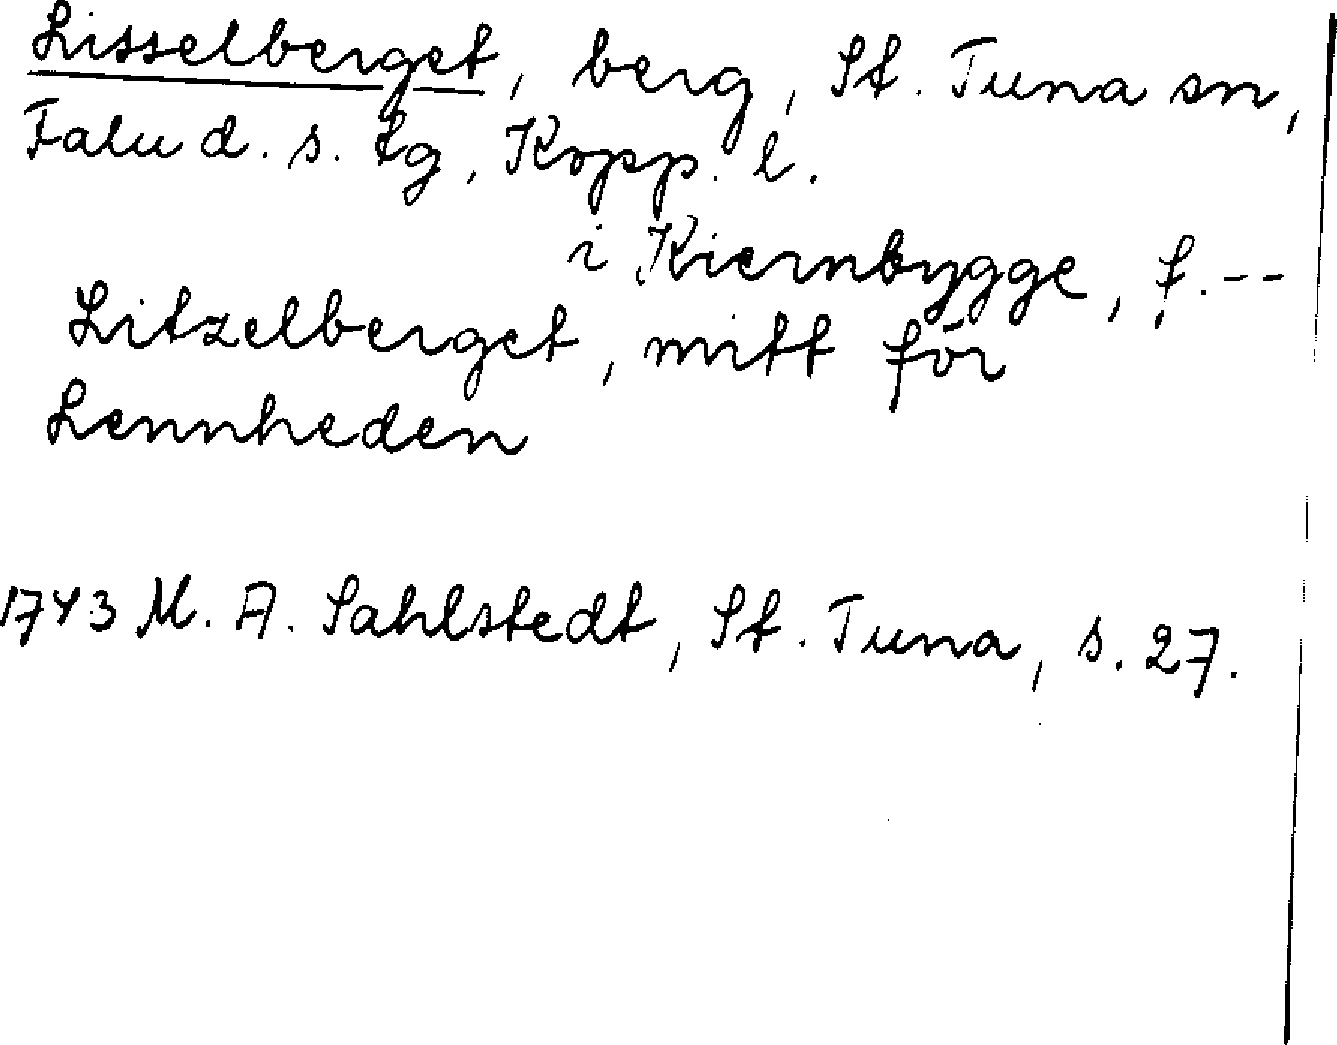 Lisselberget, berg, St. Tuna sn,
Falu d. s. tg, Kopp. l.
i Kiernbygge, f. --
Litzelberget, mitt för
Lennheden
1743 M. A. Sahlstedt, St. Tuna, s. 27.